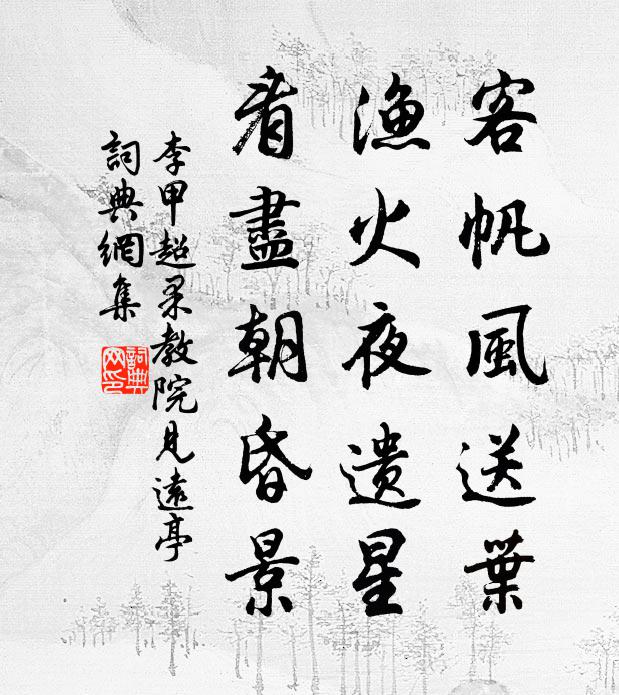 客帆風送葉
漁火夜遺星
看盡朝昏景
李甲超果教院見遠亭
詞典網集
詞典網印